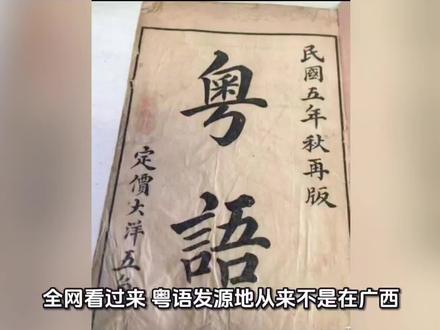 民國五年秋再版
粤語
定價大洋五
全网看过来 粤语发源地从来不是在广西